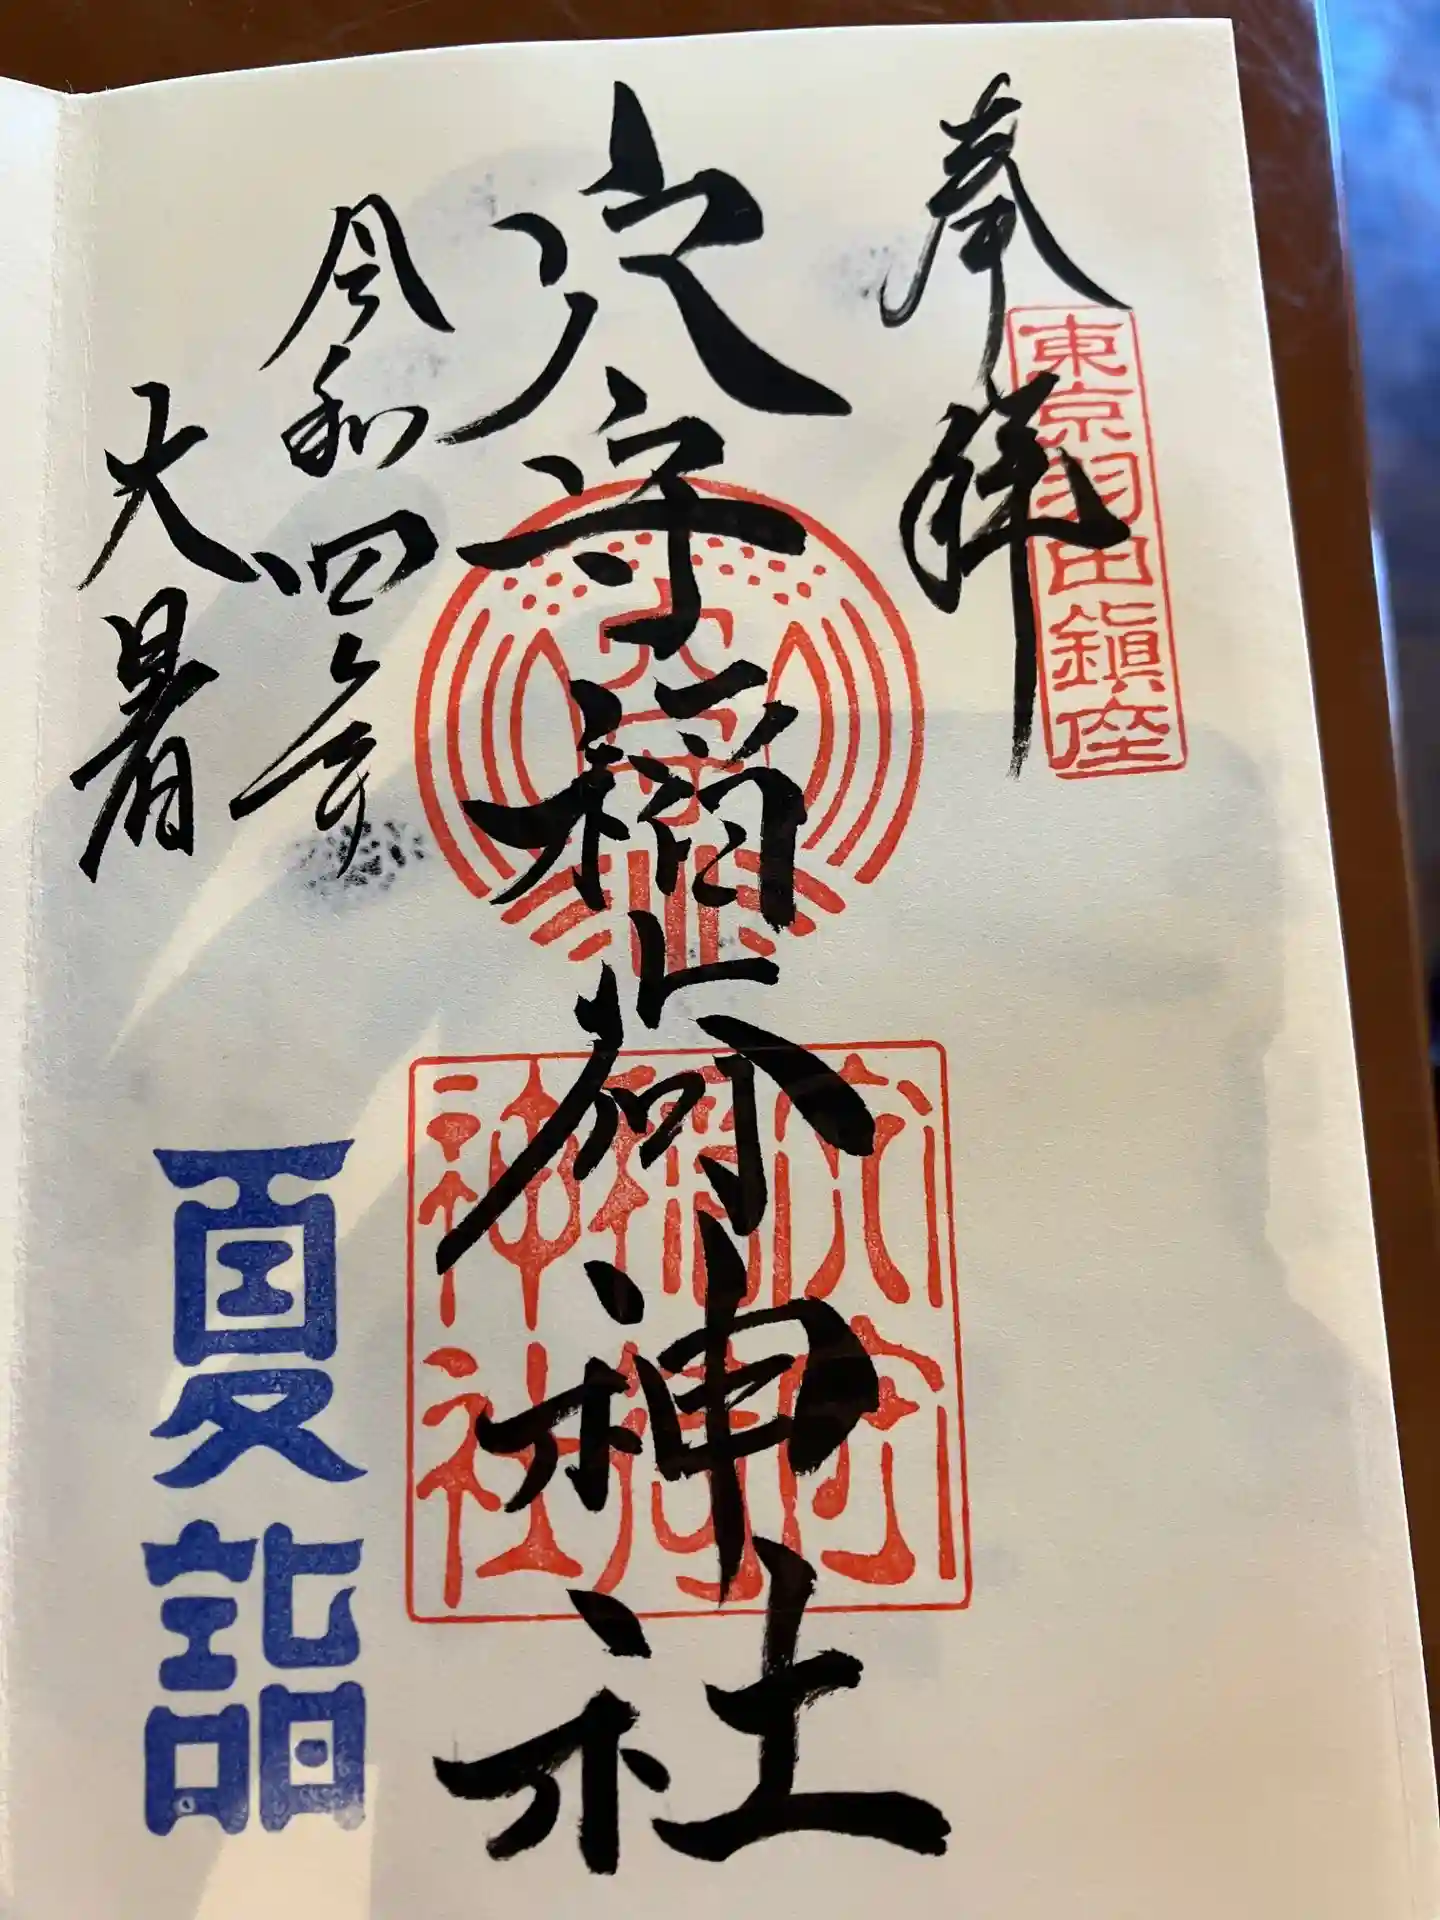 奉拝
東京羽田鎮座
穴守稲荷神社
穴守
穴守稲荷神社
令和四年
大暑
夏詣